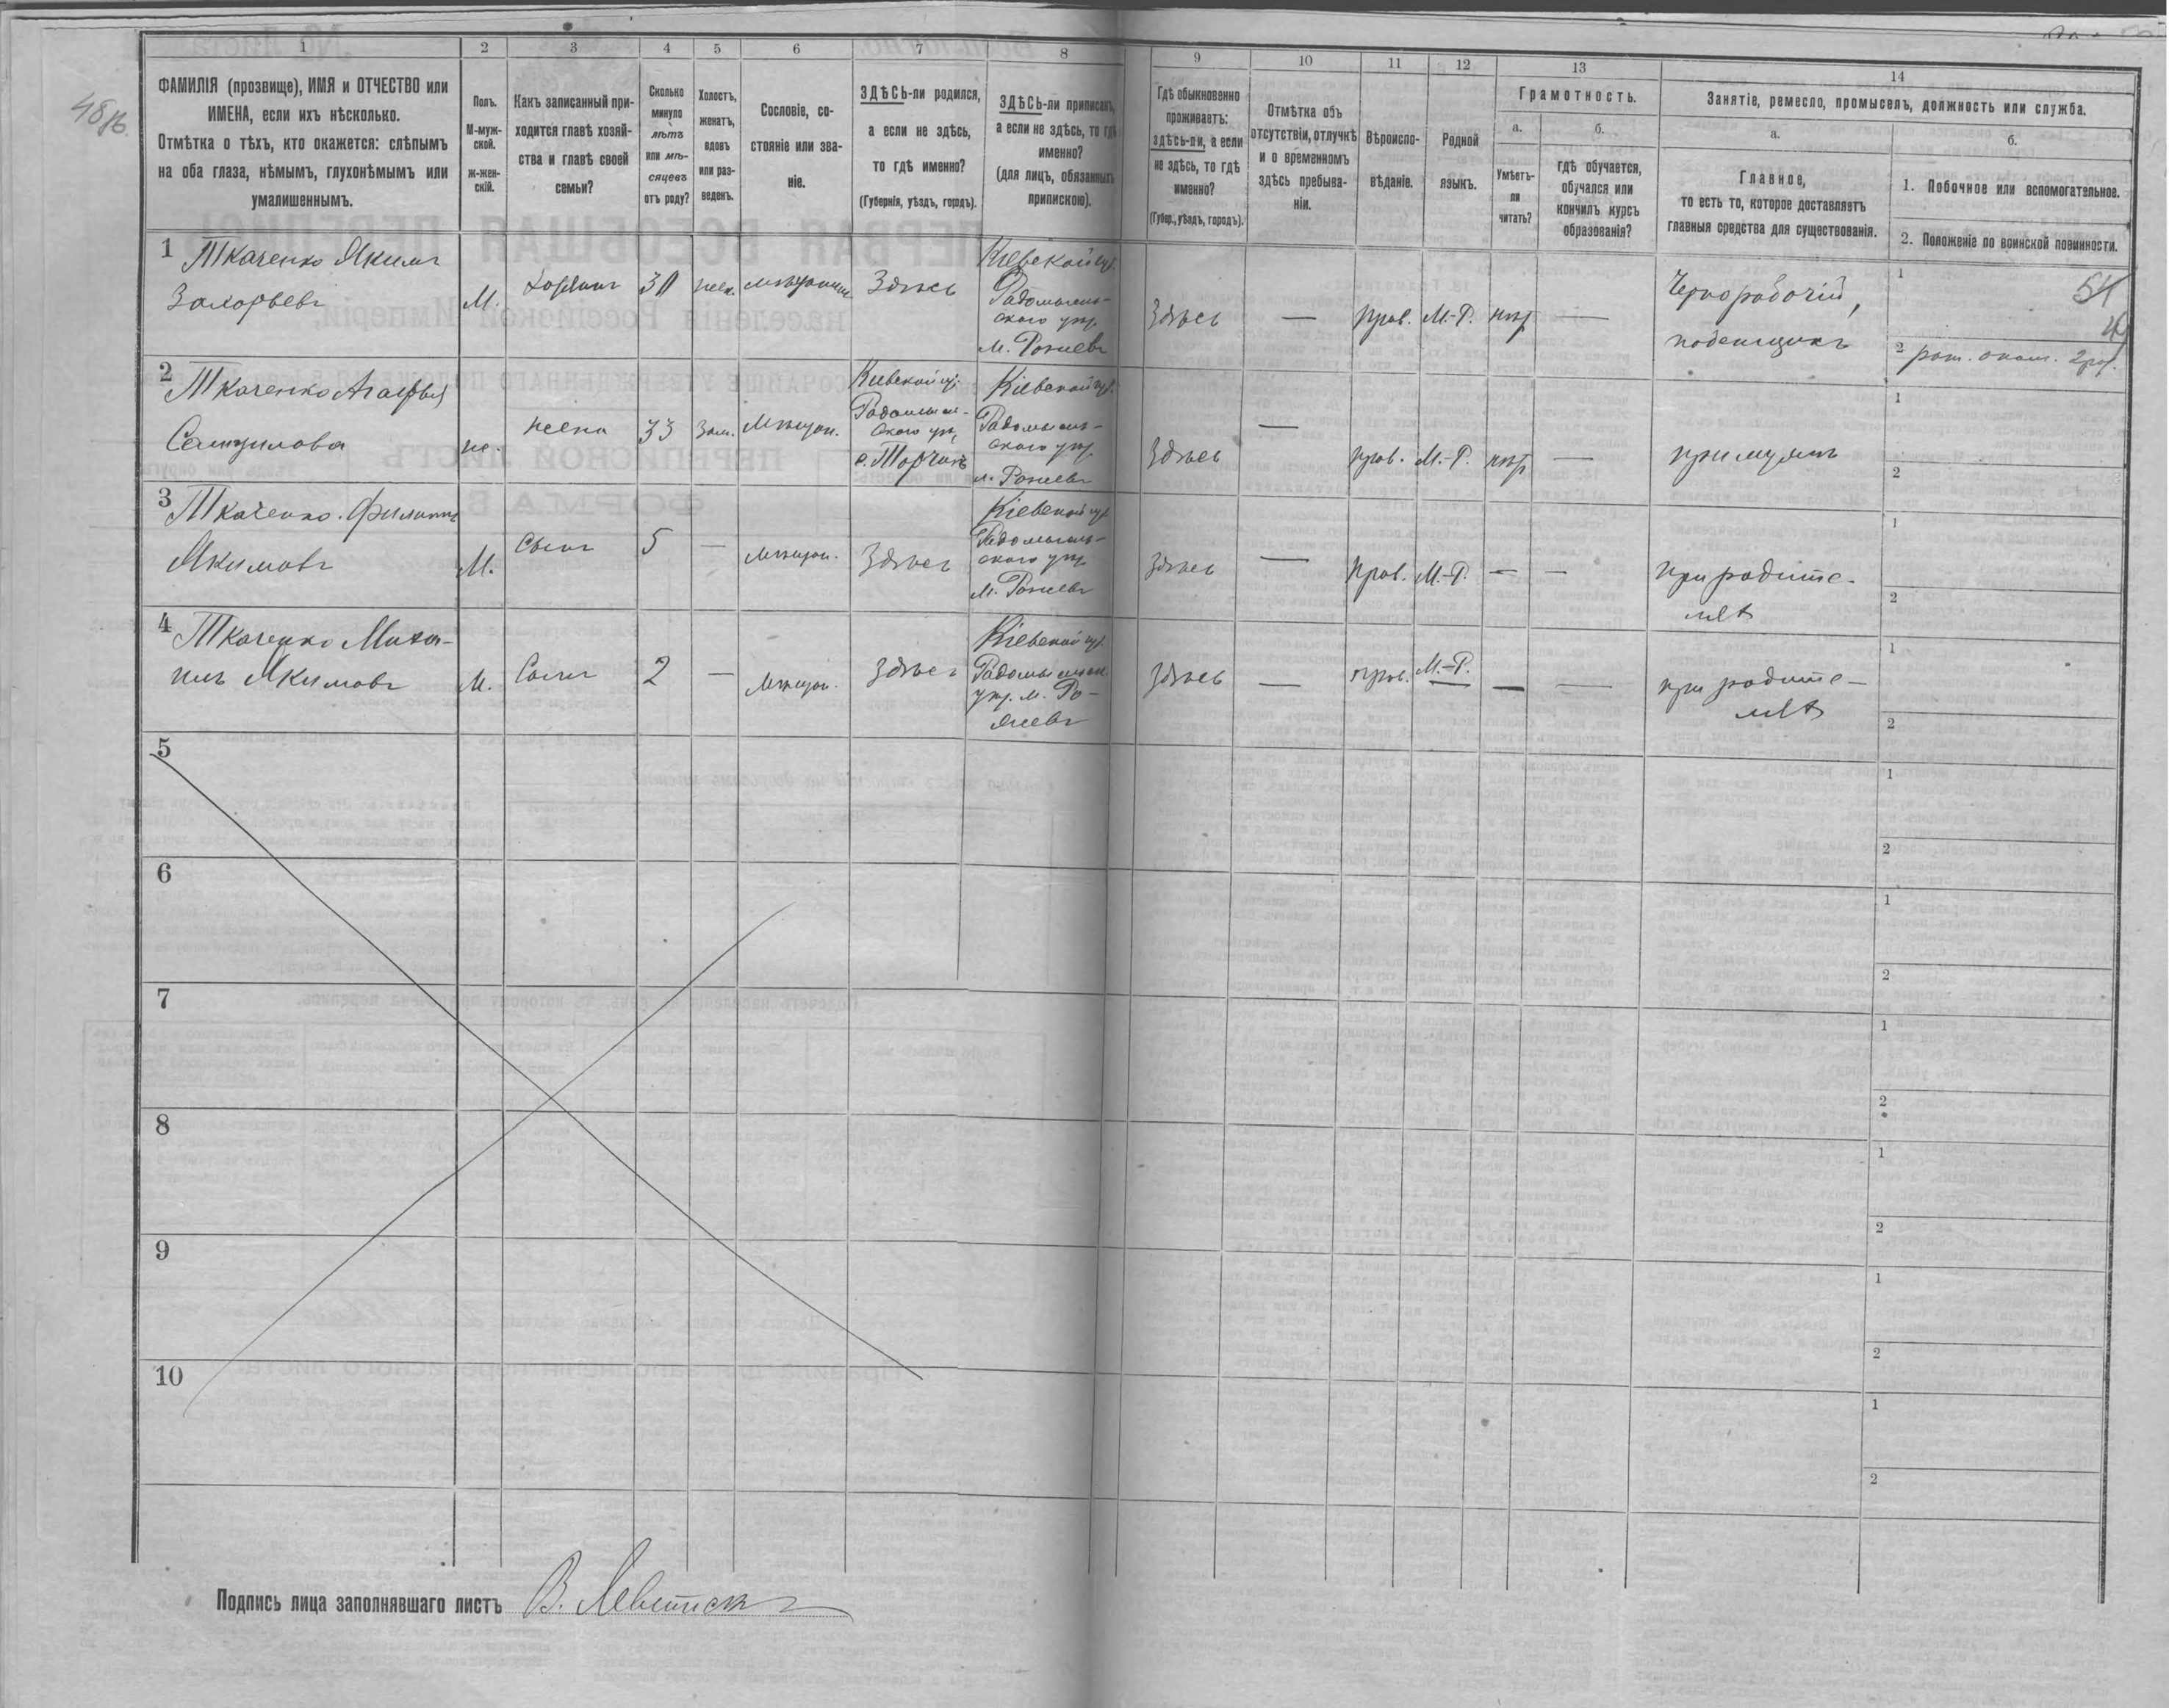 48 об.
1 2 3 4 5 6 7 8 9 10 11 12 13 14
ФАМИЛІЯ (прозвище), ИМЯ и ОТЧЕСТВО или
ИМЕНА, если ихъ нѣсколько.
Отмѣтка о тѣхъ, кто окажется: слѣпымъ
на оба глаза, нѣмымъ, глухонѣмымъ или
умалишеннымъ.
Полъ.
М-муж-
ской.
ж-жен-
скій.
Какъ записанный при-
ходится главѣ хозяй-
ства и главѣ своей
семьи?
Сколько
минуло
лѣтъ
или мѣ-
сяцевъ
отъ роду?
Холостъ,
женатъ,
вдовъ
или раз-
веденъ.
Сословіе, со-
стояніе или зва-
ніе.
ЗДѢСЬ-ли родился,
а если не здѣсь,
то гдѣ именно?
(Губернія, уѣздъ, городъ).
ЗДѢСЬ-ли приписанъ,
а если не здѣсь, то гдѣ
именно?
(для лицъ, обязанныхъ
припискою).
Гдѣ обыкновенно
проживаетъ:
здѣсь-ли, а если
не здѣсь, то гдѣ
именно?
(Губер., уѣздъ, городъ).
Отмѣтка объ
отсутствіи, отлучкѣ
и о временномъ
здѣсь пребыва-
ніи.
Вѣроиспо-
вѣданіе.
Родной
языкъ.
Грамотность.
а.
Умѣетъ-
ли
читать?
б.
Гдѣ обучается,
обучался или
кончилъ курсъ
образованія?
Занятіе, ремесло, промыселъ, должность или служба.
а.
Главное,
то есть то, которое доставляетъ
главныя средства для существованія.
б.
1. Побочное или вспомогательное.
2. Положеніе по воинской повинности.
1
Ткаченко Якимъ
Захарьевъ
М.
Хозяинъ
30
жен.
мѣщанинъ
Здѣсь
Кіевской губ.
Радомысль-
скаго уѣз.
м. Рожевъ
Здѣсь
—
прав.
М.-Р.
нѣт
—
Чернорабочій,
поденщикъ
1
2
2
Ткаченко Агафья
Самуилова
ж.
жена
33
зам.
Мѣщан.
Кіевской губ.
Радомысль-
скаго уѣз.
Кіевской губ.
Радомысль-
скаго уѣз.
м. Рожевъ
Здѣсь
—
прав.
М.-Р.
нѣт
—
при мужѣ
1
2
3
Ткаченко Филиппъ
Якимовъ
М.
Сынъ
5
—
мѣщан.
Здѣсь
Кіевской губ.
Радомысль-
скаго уѣз.
м. Рожевъ
Здѣсь
—
прав.
М.-Р.
—
—
при родите-
ляхъ
1
2
4
Ткаченко Миха-
илъ Якимовъ
М.
Сынъ
2
—
Мѣщан.
Здѣсь
Кіевской губ.
Радомысльск.
уѣз. м. Ро-
жевъ
Здѣсь
—
прав.
М.-Р.
—
—
при родите-
ляхъ
1
2
5
1
2
6
1
2
7
1
2
8
1
2
9
1
2
10
1
2
Подпись лица заполнявшаго листъ